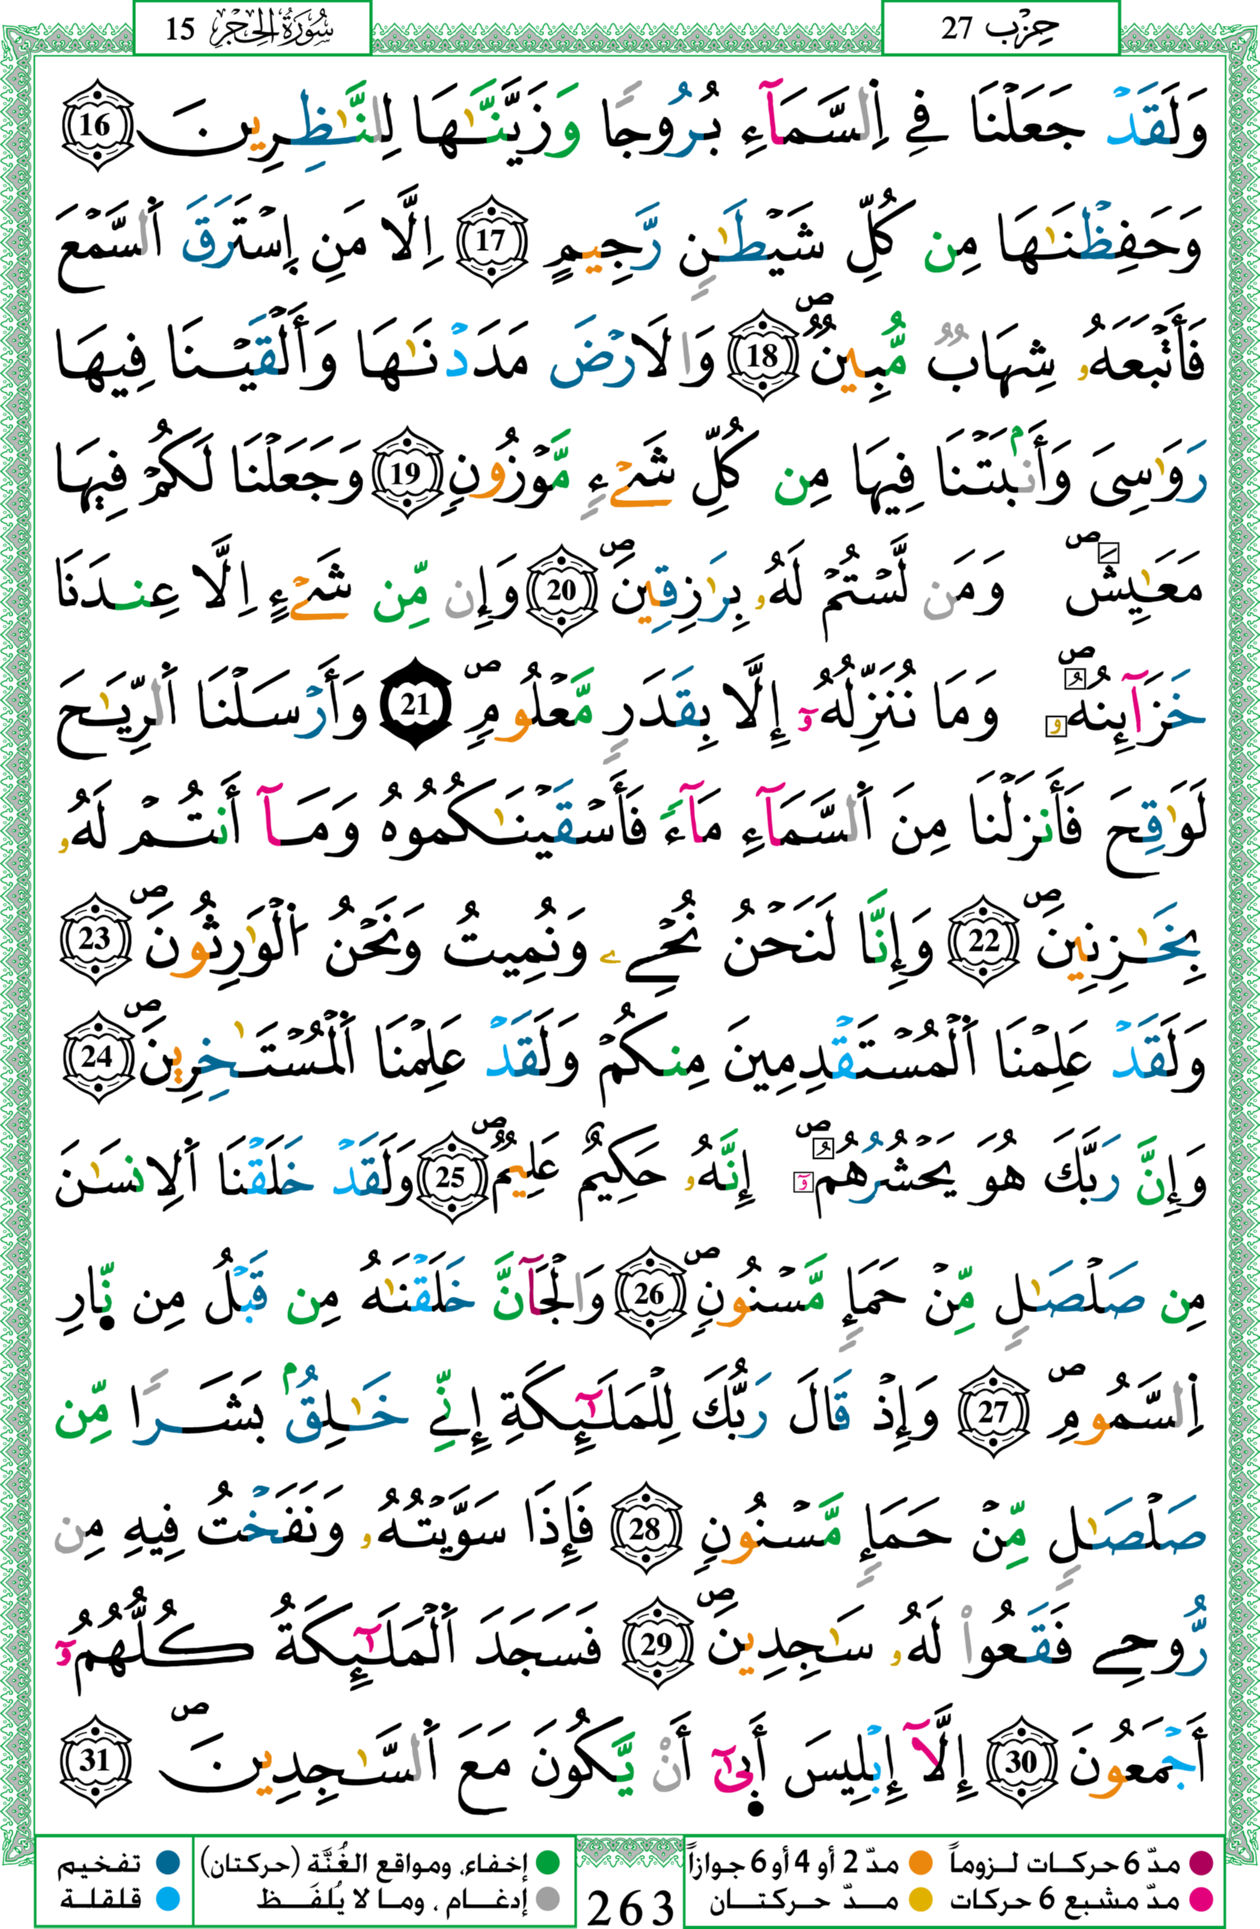 حِزْب 27
سُورَةُ الحِجْر 15
وَلَقَدْ جَعَلْنَا فِے اِ۬لسَّمَآءِ بُرُوجاٗ وَزَيَّنَّٰهَا لِلنَّٰظِرِينَ 16
وَحَفِظْنَٰهَا مِن كُلِّ شَيْطَٰنٖ رَّجِيمٍ 17 اِلَّا مَنِ اِ۪سْتَرَقَ اَ۬لسَّمْعَ
فَأَتْبَعَهُۥ شِهَابٞ مُّبِينٞۖ 18 وَالَارْضَ مَدَدْنَٰهَا وَأَلْقَيْنَا فِيهَا
رَوَٰسِيَ وَأَنۢبَتْنَا فِيهَا مِن كُلِّ شَےْءٖ مَّوْزُونٖ 19 وَجَعَلْنَا لَكُمْ فِيهَا
مَعَٰيِشَۖ وَمَن لَّسْتُمْ لَهُۥ بِرَٰزِقِينَۖ 20 وَإِن مِّن شَےْءٍ اِلَّا عِندَنَا
خَزَآئِنُهُۥۖ وَمَا نُنَزِّلُهُۥٓ إِلَّا بِقَدَرٖ مَّعْلُومٖۖ 21 وَأَرْسَلْنَا اَ۬لرِّيَٰحَ
لَوَٰقِحَ فَأَنزَلْنَا مِنَ اَ۬لسَّمَآءِ مَآءٗ فَأَسْقَيْنَٰكُمُوهُ وَمَآ أَنتُمْ لَهُۥ
بِخَٰزِنِينَۖ 22 وَإِنَّا لَنَحْنُ نُحْےِۦ وَنُمِيتُ وَنَحْنُ اُ۬لْوَٰرِثُونَۖ 23
وَلَقَدْ عَلِمْنَا اَ۬لْمُسْتَقْدِمِينَ مِنكُمْ وَلَقَدْ عَلِمْنَا اَ۬لْمُسْتَٰخِرِينَۖ 24
وَإِنَّ رَبَّكَ هُوَ يَحْشُرُهُمُۥٓۖ إِنَّهُۥ حَكِيمٌ عَلِيمٞۖ 25 وَلَقَدْ خَلَقْنَا اَ۬لِانسَٰنَ
مِن صَلْصَٰلٖ مِّنْ حَمَإٖ مَّسْنُونٖۖ 26 وَالْجَآنَّ خَلَقْنَٰهُ مِن قَبْلُ مِن نّ۪ارِ
اِ۬لسَّمُومِۖ 27 وَإِذْ قَالَ رَبُّكَ لِلْمَلَٰٓئِكَةِ إِنِّے خَٰلِقُۢ بَشَراٗ مِّن
صَلْصَٰلٖ مِّنْ حَمَإٖ مَّسْنُونٖ 28 فَإِذَا سَوَّيْتُهُۥ وَنَفَخْتُ فِيهِ مِن
رُّوحِے فَقَعُواْ لَهُۥ سَٰجِدِينَۖ 29 فَسَجَدَ اَ۬لْمَلَٰٓئِكَةُ كُلُّهُمُۥٓ
أَجْمَعُونَ 30 إِلَّآ إِبْلِيسَ أَب۪ىٰٓ أَنْ يَّكُونَ مَعَ اَ۬لسَّٰجِدِينَۖ 31
مدّ 6 حركات لـزوماً مدّ 2 أو 4 أو 6 جوازاً
مدّ مشبع 6 حركات مدّ حركتـان
263
إخفاء، ومواقع الغُنَّة (حركتان) تفخيم
إدغام ، وما لا يُلفَظ قلقلة